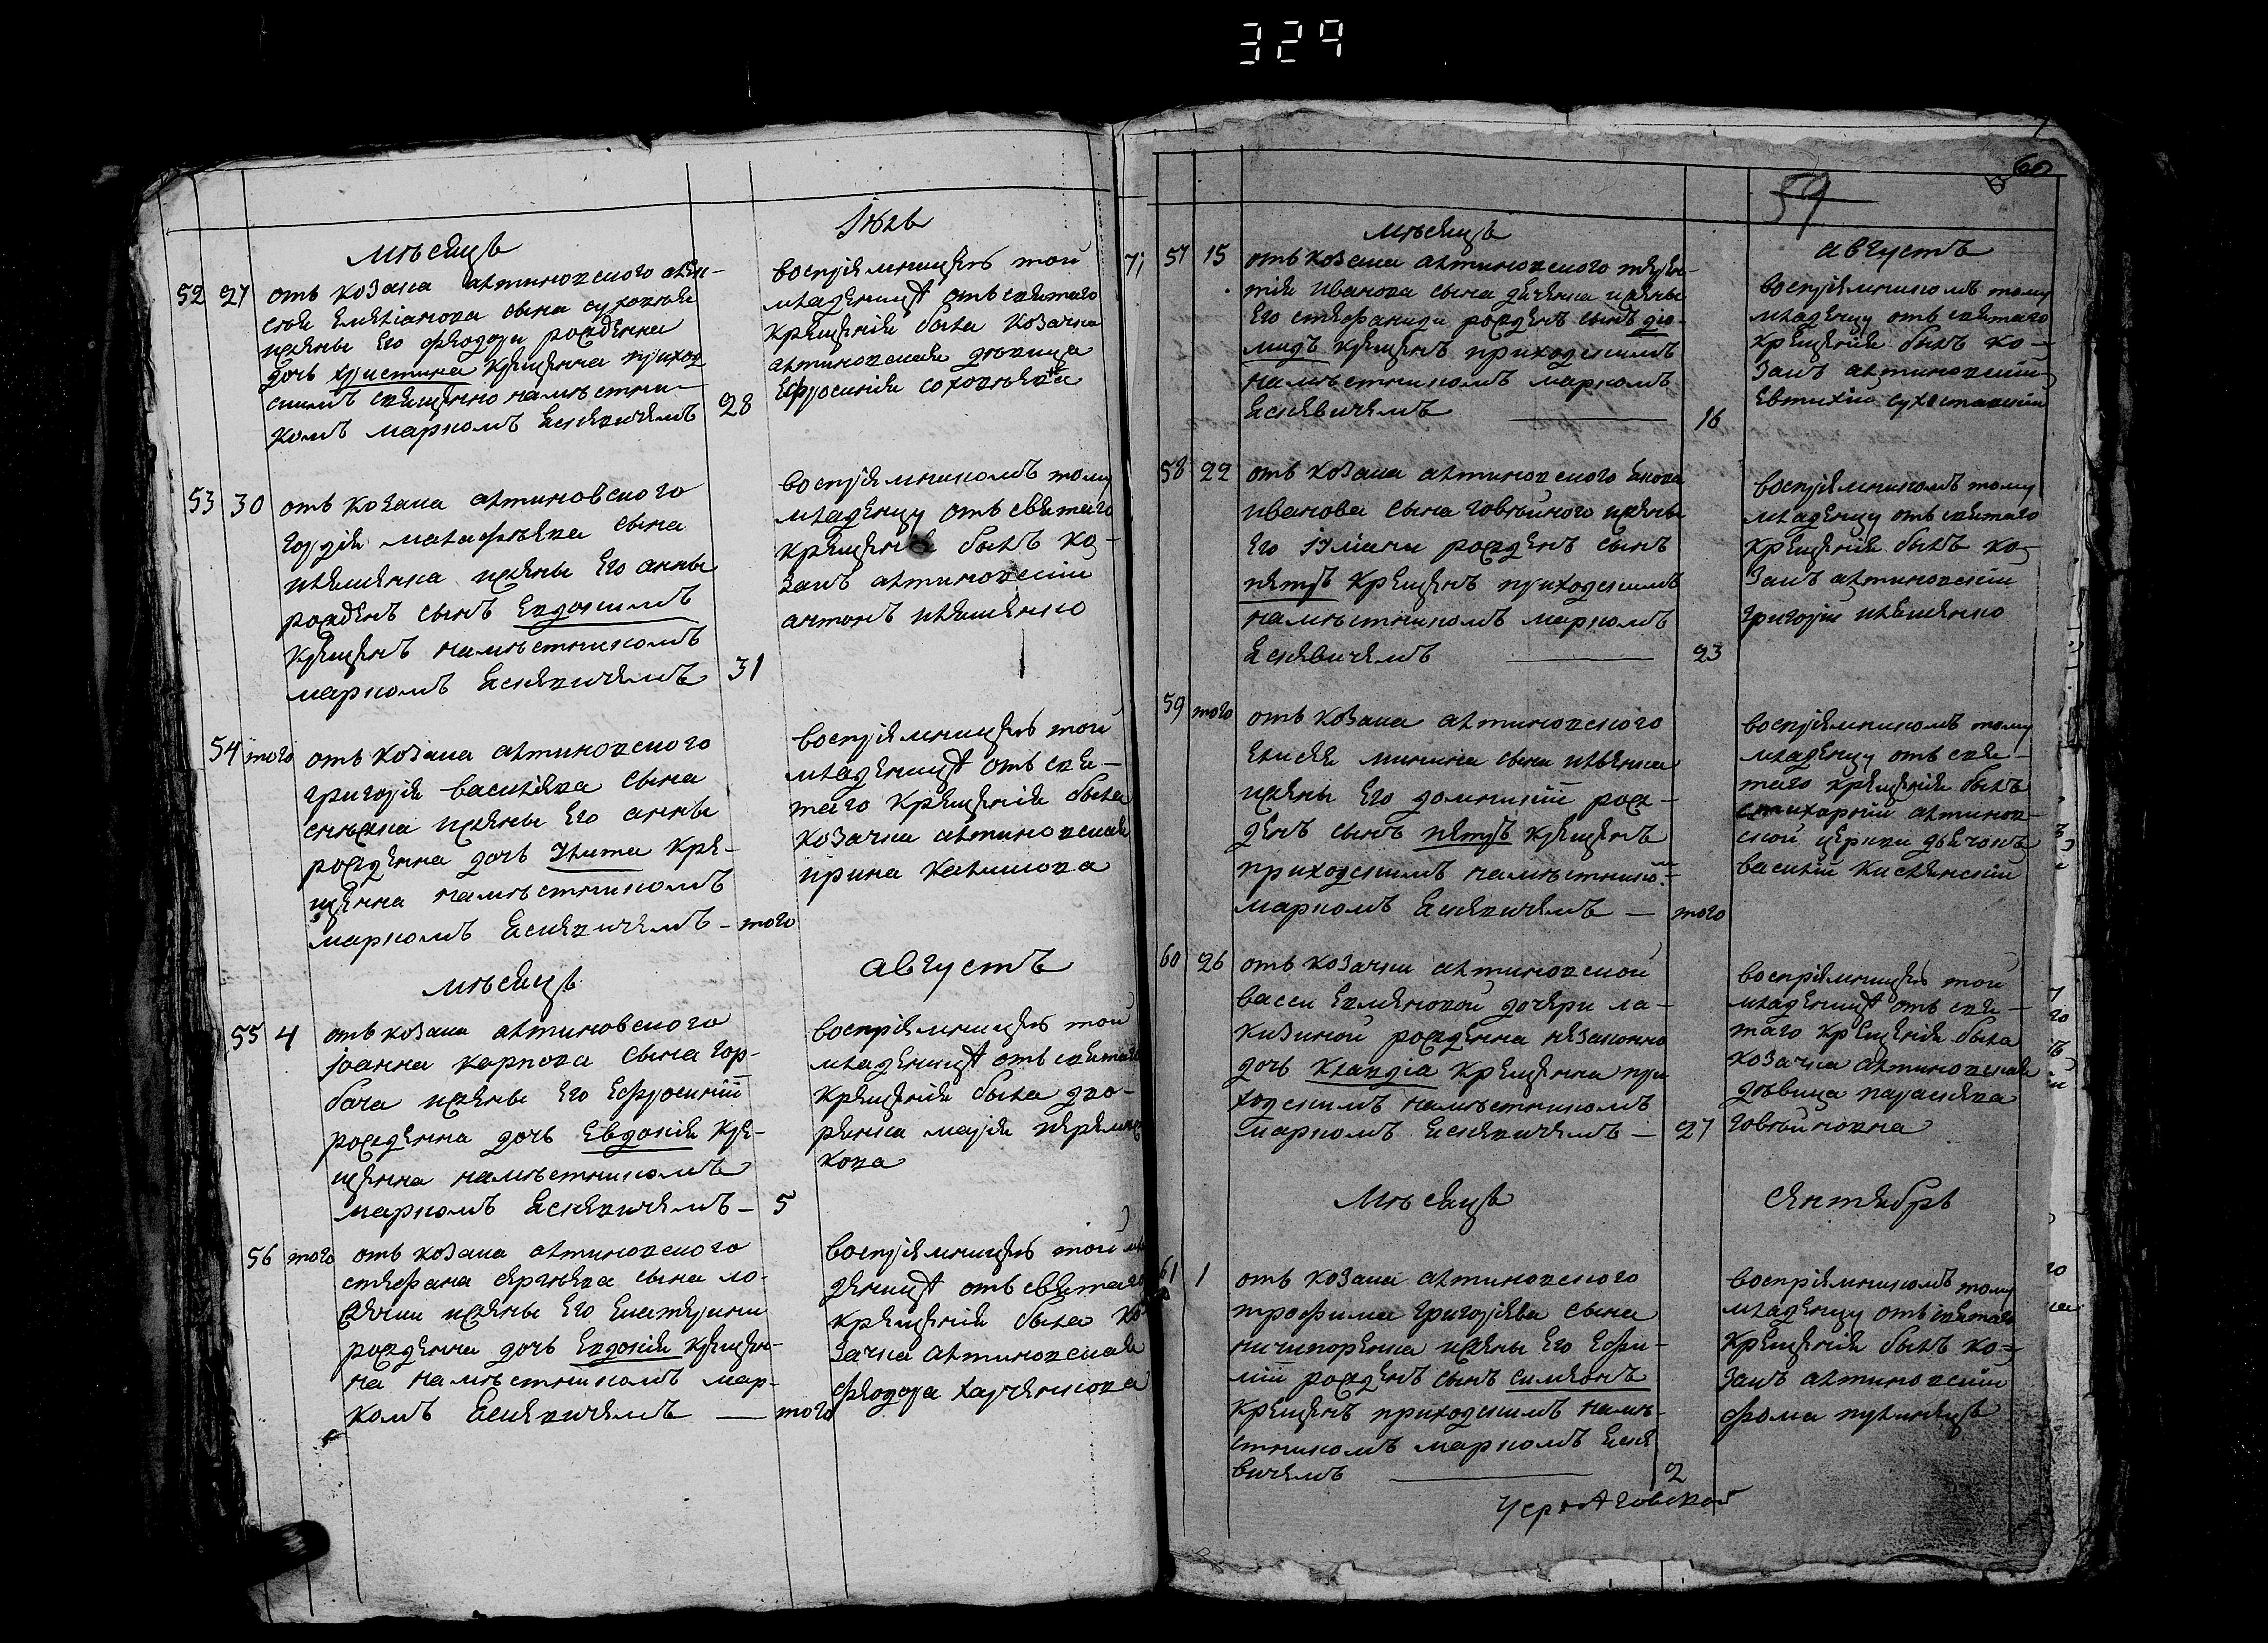 329
мѣсяцъ
Іюль
52 27 отъ козака алтиновского алек-
сѣя емеліанова сына сухон
жены его феодори рожденна
дочь христина крещенна приход
скимъ священно намѣстни-
комъ маркомъ Ескевичемъ 28
воспріемницею той
младеницѣ отъ святаго
крещенія была козачка
алтиновская дѣвица
Ефросинія
53 30 отъ козака алтиновского
гордія малафѣева сына
жены его анны
рожденъ сынъ Евдокимъ
крещенъ намѣстникомъ
маркомъ Ескевичемъ 31
воспріемникомъ тому
младенцу отъ святаго
крещенія былъ ко-
закъ алтиновскій
антонъ
54 того отъ козака алтиновского
григорія василіева сына
жены его анны
рожденна дочь Улита кре-
щенна намѣстникомъ
маркомъ Ескевичемъ - того
воспріемницею той
младеницѣ отъ свя-
таго крещенія была
козачка алтиновская
ирина
мѣсяцъ
августъ
55 4 отъ козака алтиновского
іоанна карпова сына гор-
бача жены его Ефросиніи
рожденна дочь Евдокія кре-
щенна намѣстникомъ
маркомъ Ескевичемъ - 5
воспріемницею той
младеницѣ отъ святаго
крещенія была дво-
рянка марія
кова
56 того отъ козака алтиновского
стефана сергѣева сына ло-
жечки жены его екатерини
рожденна дочь Евдокія крещен-
на намѣстникомъ мар-
комъ Ескевичемъ — того
воспріемницею той мла
деницѣ отъ святаго
крещенія была ко
зачка алтиновская
феодора харченкова
59
60
57 15
мѣсяцъ
августъ
отъ козака алтиновского терен-
тія иванова сына дяченка жены
его стефаниди рожденъ сынъ діо-
мидъ крещенъ приходскимъ
намѣстникомъ маркомъ
Ескевичемъ — 16
воспріемникомъ тому
младенцу отъ святаго
крещенія былъ ко-
закъ алтиновскій
Евтихій сухоставскій
58 22 отъ козака алтиновского якова
иванова сына говѣйного жены
его іуліани рожденъ сынъ
петръ крещенъ приходскимъ
намѣстникомъ маркомъ
Ескевичемъ — 23
воспріемникомъ тому
младенцу отъ святаго
крещенія былъ ко-
закъ алтиновскій
григорій
59 того отъ козака алтиновского
елисея минина сына
жены его домникіи рож-
денъ сынъ петръ крещенъ
приходскимъ намѣстнико-мъ
маркомъ Ескевичемъ — того
воспріемникомъ тому
младенцу отъ свя-
таго крещенія былъ
стихарній алтинов-
ской церкви дьячокъ
василій Кислянскій
60 26 отъ козачки алтиновской
васси дочери ла-
кизиной рожденна незаконно
дочь Клавдіа крещенна при
ходскимъ намѣстникомъ
маркомъ Ескевичемъ — 27
воспріемницею той
младеницѣ отъ свя-
таго крещенія была
козачка алтиновская
дѣвица параскева
говѣйновна
мѣсяцъ
сентябрь
61 1 отъ козака алтиновского
трофима григоріева сына
ничипоренка жены его ефи-
міи рожденъ сынъ симеонъ
крещенъ приходскимъ намѣ-
стникомъ маркомъ Ескя
вичемъ — 2
воспріемникомъ тому
младенцу отъ святаго
крещенія былъ ко-
закъ алтиновскій
фома путивлецъ